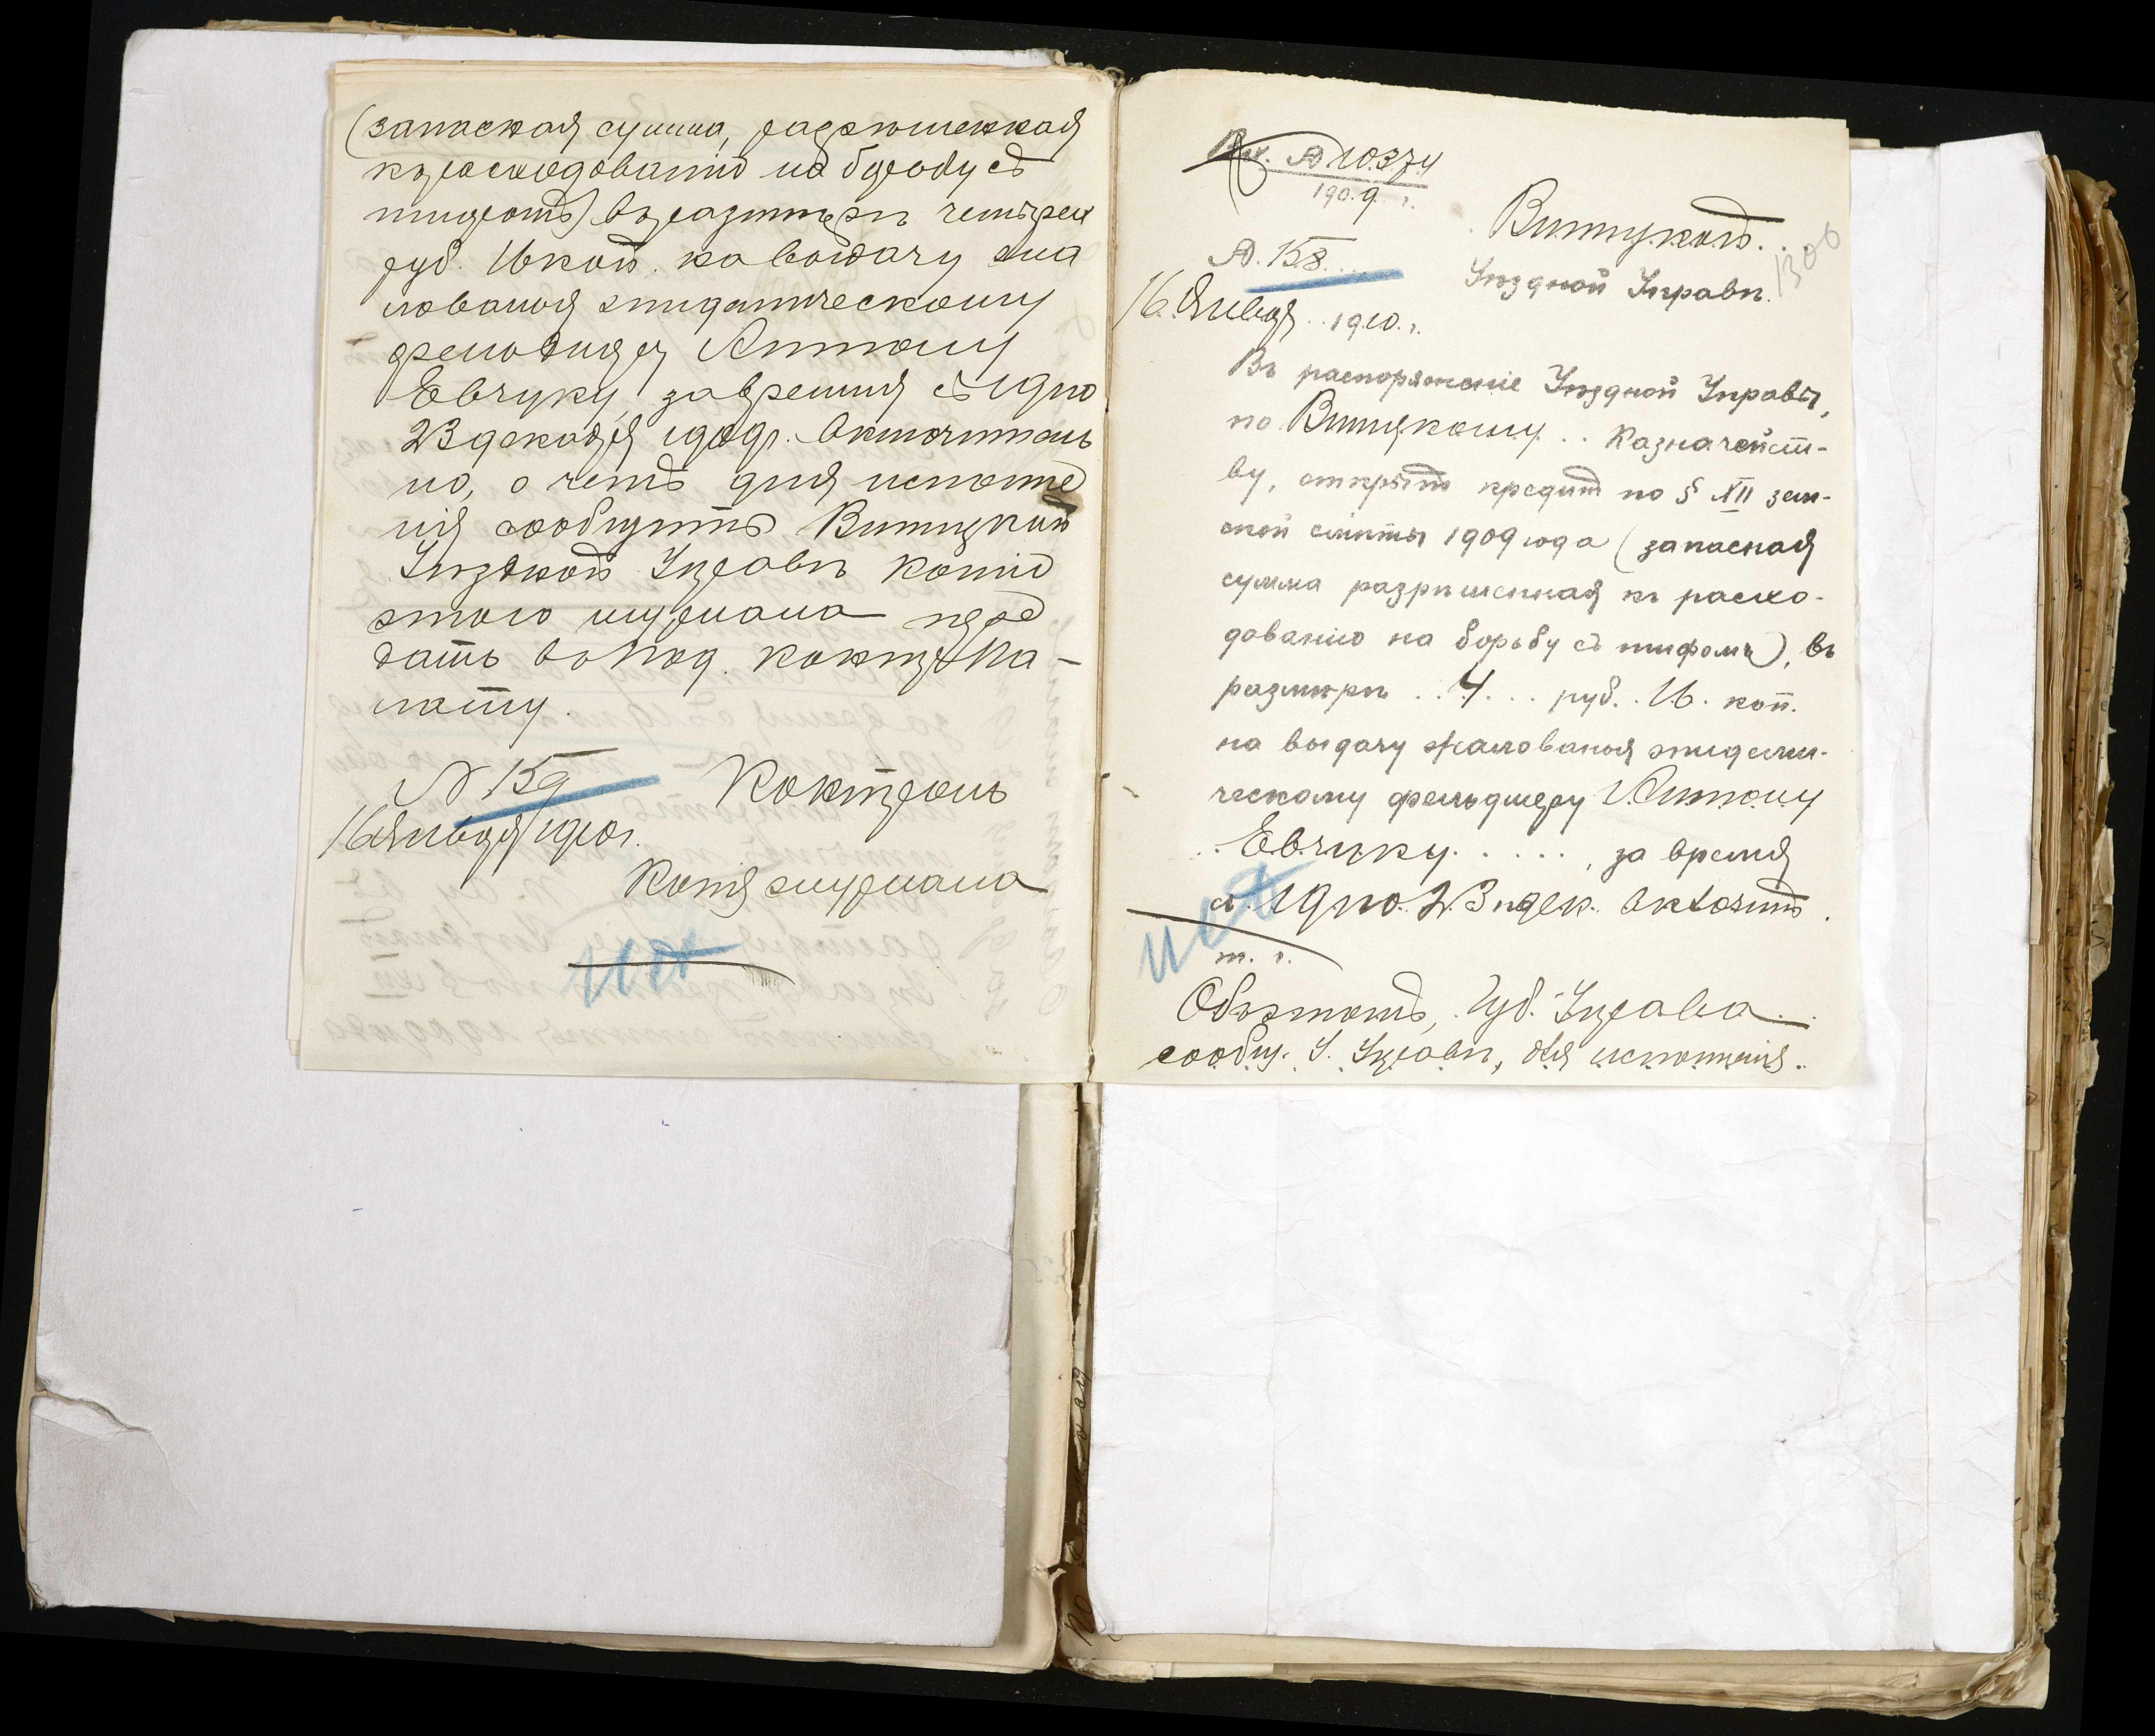 (запасная сумма, разрѣшенная
къ расходованію на борьбу съ
тифомъ) въ размѣрѣ четырех
руб. 16 коп. на выдачу жа
лованья эпидемическому
фельдшеру Антону
Евчуку, за время съ 19 по
23 декабря 1909 г. включитель
но, о чемъ для исполне
нія сообщить Винницкой
Уѣздной Управѣ копію
этого журнала пере
дать въ Под. контр. Па-
лату.
№ 159
16 Января 1910 г.
Контроль
Копія журнала
исп
Вх. № 10374
1909 г.
Винницкой
Уѣздной Управѣ.
1300
№ 158
16 Января 1910 г.
Въ распоряженіе Уѣздной Управы,
по Винницкому Казначейст-
ву, открытъ кредитъ по § XII зем-
ской смѣты 1909 года (запасная
сумма разрѣшенная къ расхо-
дованію на борьбу съ тифомъ), въ
размѣрѣ 4 руб. 16 коп.
на выдачу жалованья эпидеми-
ческому фельдшеру Антону
Евчуку, за время
съ 19 по 23 дек. включит.
исп
т. г.
Объ этомъ, Губ. Управа
сообщ. У. Управѣ, для исполненія.